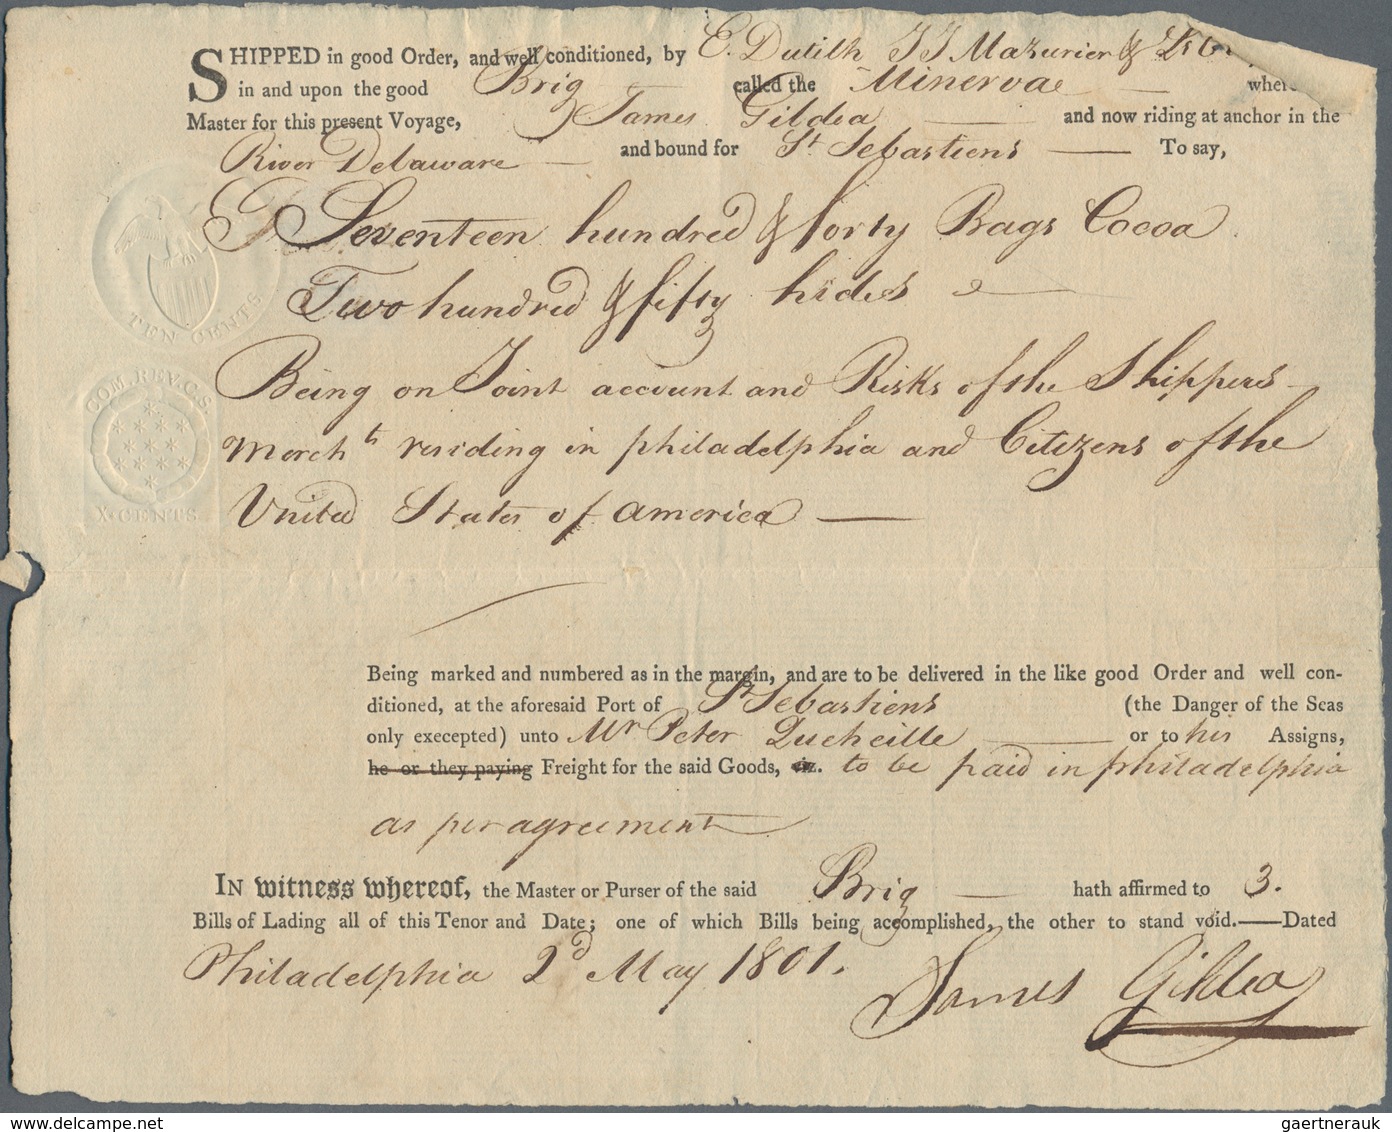 SHIPPED in good Order, and well conditioned, by E. Dutilh JJ Mazurier &
in and upon the good Brig called the Minerva where
Master for this present Voyage, James Gildea and now riding at anchor in the
River Delaware and bound for St Sebastiens To say,
Seventeen hundred & forty Bags Cocoa
Two hundred & fifty hides
Being on Joint account and Risks of the Shippers
Merchts residing in philadelphia and Citizens of the
United States of america
TEN CENTS
COM. REV. C.S.
X•CENTS
Being marked and numbered as in the margin, and are to be delivered in the like good Order and well con-
ditioned, at the aforesaid Port of St Sebastiens (the Danger of the Seas
only execepted) unto Mr Peter Queheille or to his Assigns,
he or they paying Freight for the said Goods, to be paid in philadelphia
as per agreement
IN witness whereof, the Master or Purser of the said Brig hath affirmed to 3.
Bills of Lading all of this Tenor and Date; one of which Bills being accomplished, the other to stand void.—Dated
Philadelphia 2d May 1801.
James Gildea
www.delcampe.net
gaertnerauk